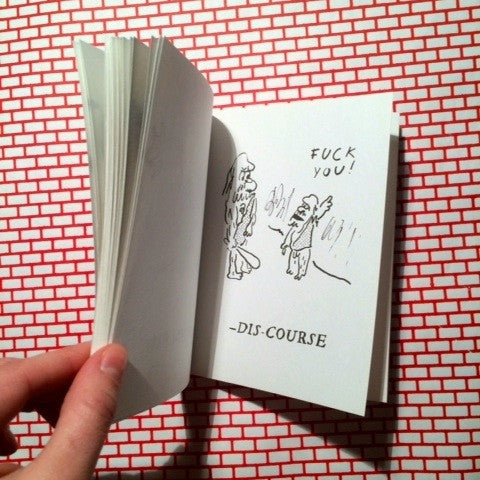 FUCK
YOU!
-DIS-COURSE